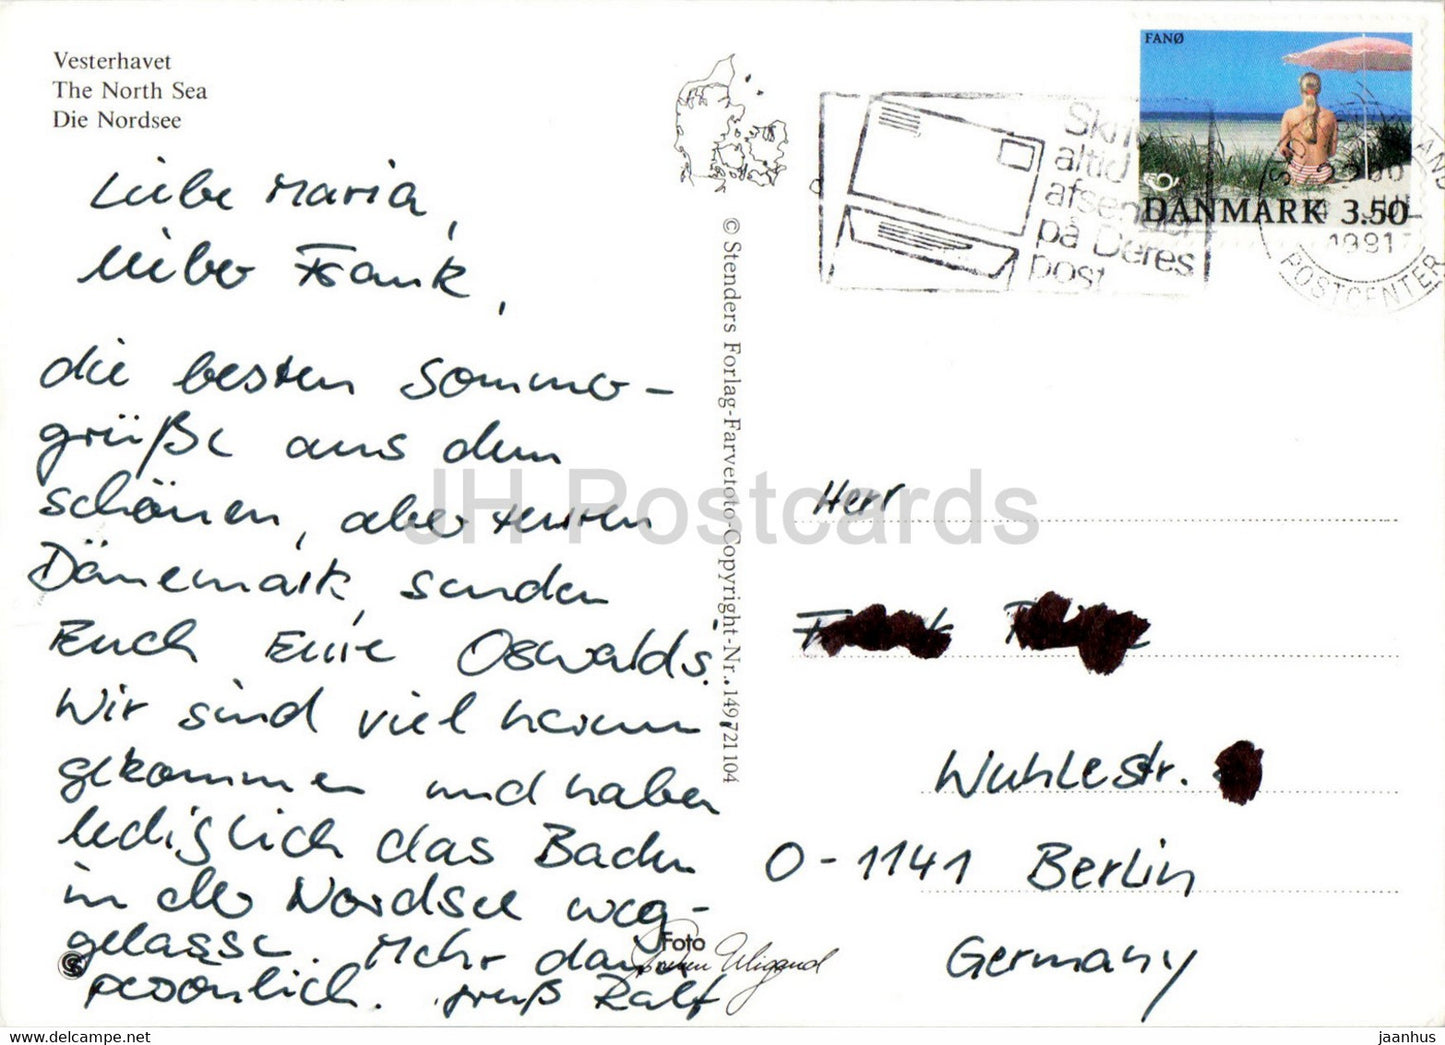 Vesterhavet
The North Sea
Die Nordsee
Liebe Maria,
Lieber Frank,
die besten Sommer-
grüße aus dem
schönen, aber teuren
Dänemark, senden
Euch Eure Oswalds.
Wir sind viel herum
gekommen und haben
lediglich das Baden
in der Nordsee weg-
gelassen. Mehr dann
persönlich. Gruß Ralf
© Stenders Forlag-Farvefoto-Copyright-Nr. 149 721 104
Foto
Wigand
Skriv
altid
afsender
på Deres
post
FANØ
DANMARK 3.50
1991
POSTCENTER
Herr
Wuhlestr.
O-1141 Berlin
Germany
JH Postcards
HipPostcard.com
jaanhus